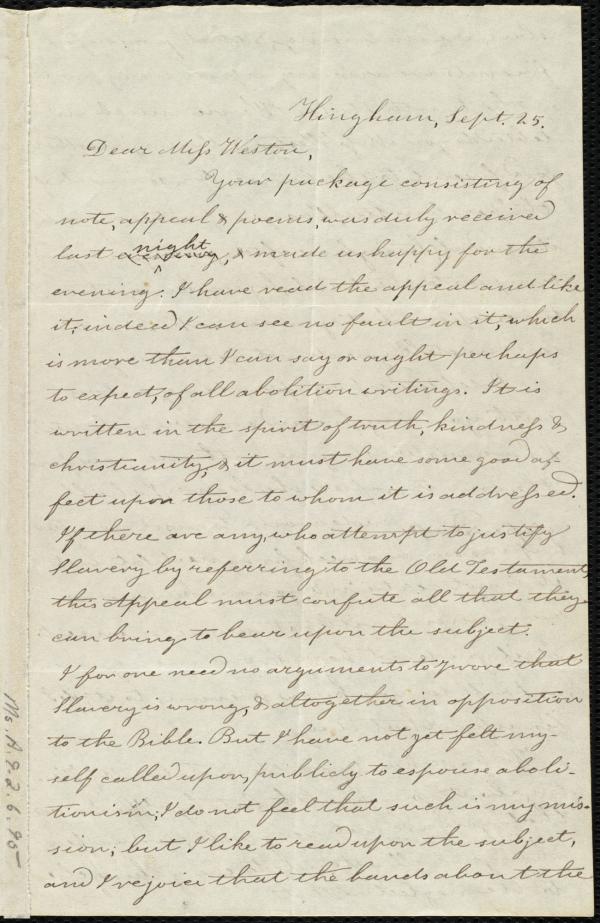 Hingham, Sept. 25.
Dear Miss Weston,
Your package consisting of
note, appeal & poems, was duly received
last evening night, & made us happy for the
evening. I have read the appeal and like
it; indeed I can see no fault in it, which
is more than I can say or ought perhaps
to expect, of all abolition writings. It is
written in the spirit of truth, kindness &
christianity, & it must have some good af-
fect upon those to whom it is addressed.
If there are any, who attempt to justify
Slavery by referring to the Old Testament,
this Appeal must confute all that they
can bring to bear upon the subject.
I for one need no arguments to prove that
Slavery is wrong, & altogether in opposition
to the Bible. But I have not yet felt my-
self called upon, publicly to espouse aboli-
tionism; I do not feel that such is my mis-
sion; but I like to read upon the subject,
and I rejoice that the bands about the
Ms. A. 9. 2. 6. 95